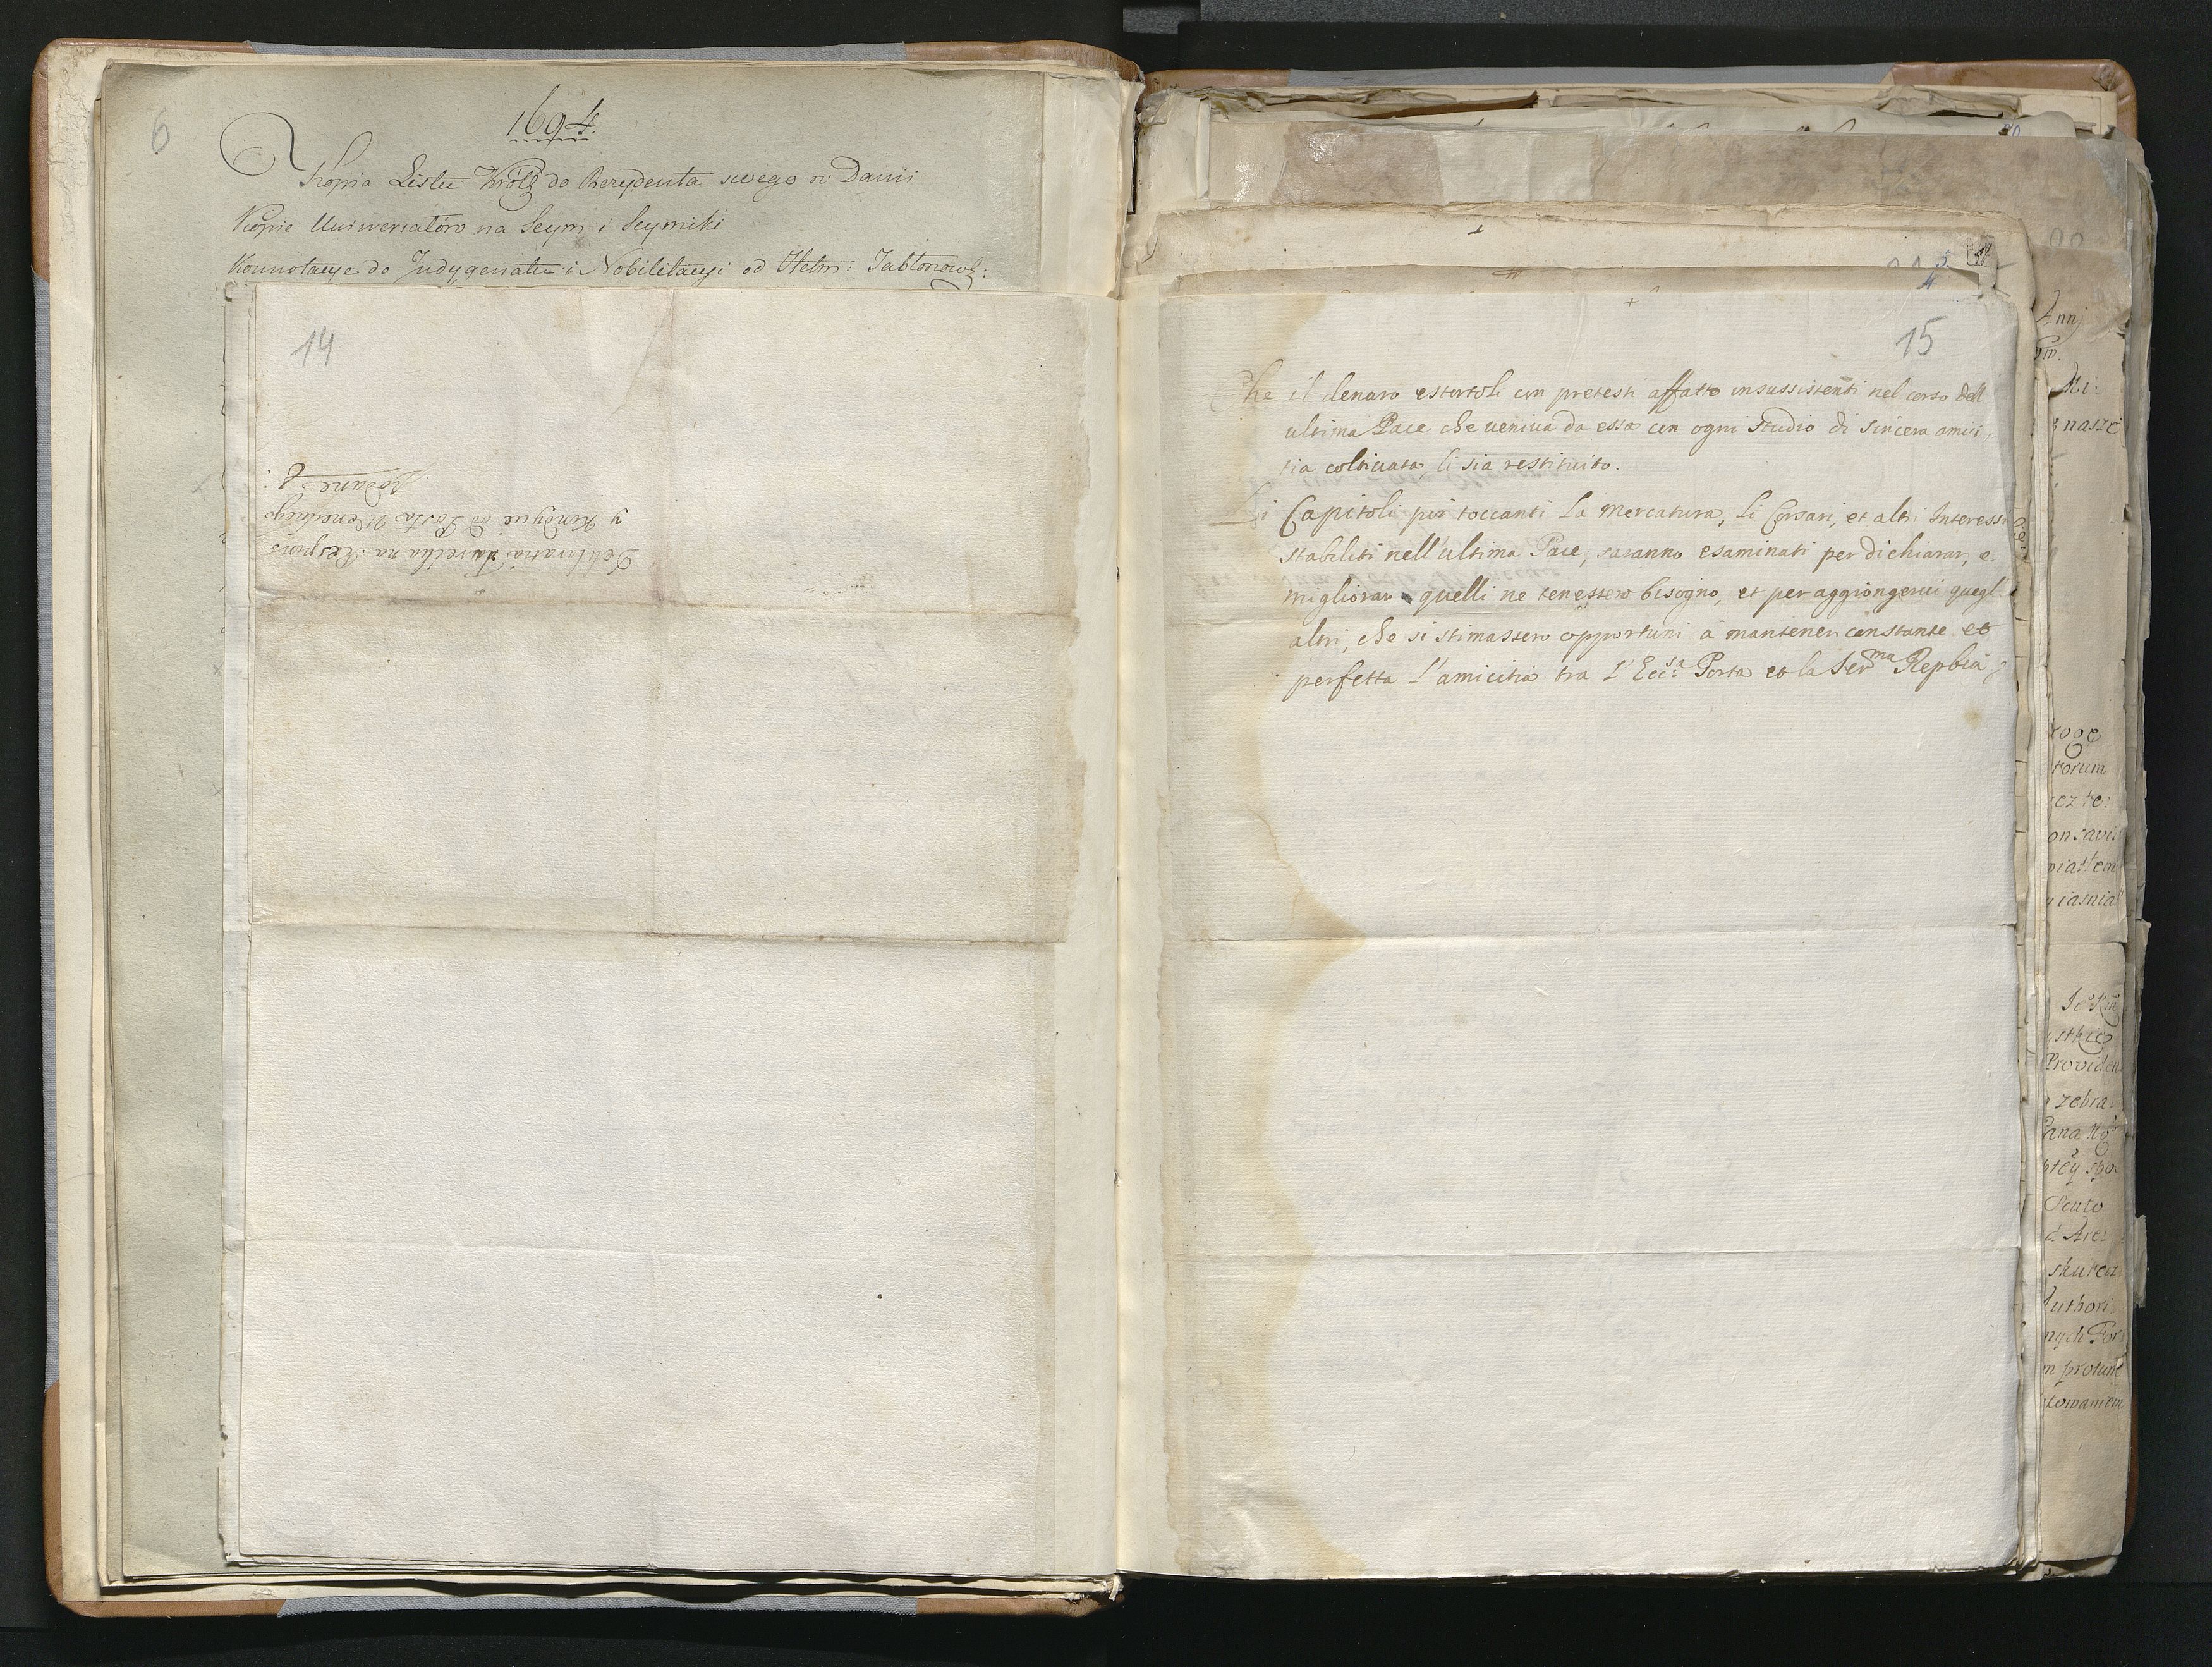 6
1694.
Kopia Listu Króla do Rezydenta swego w Danii
Kopie Uniwersałów na Seym i Seymiki
Konnotacye do Indygenatu i Nobilitacyi od Hetm: Jabłonows:
14
Deklaratia Turecka na Respons
y Kondycie od Posła Weneckiego
podane
15
Che il denaro estortoli con pretesti affatto insussistenti nel corso dell
ultima Pace che veniva da essa con ogni studio di sincera amici
tia coltivata li sia restituito.
Li Capitoli più toccanti la mercatura, li Corsari, et altri Interessi
stabiliti nell'ultima Pace, saranno esaminati per dichiarar, e
migliorar quelli ne tenessero bisogno, et per aggiongervi quegl
altri, che si stimassero opportuni à mantener constante et
perfetta l'amicitia tra l'Ecc.sa Porta et la Ser.ma Repbca
Annj
nasze
torum
Provid
zebra
Pana